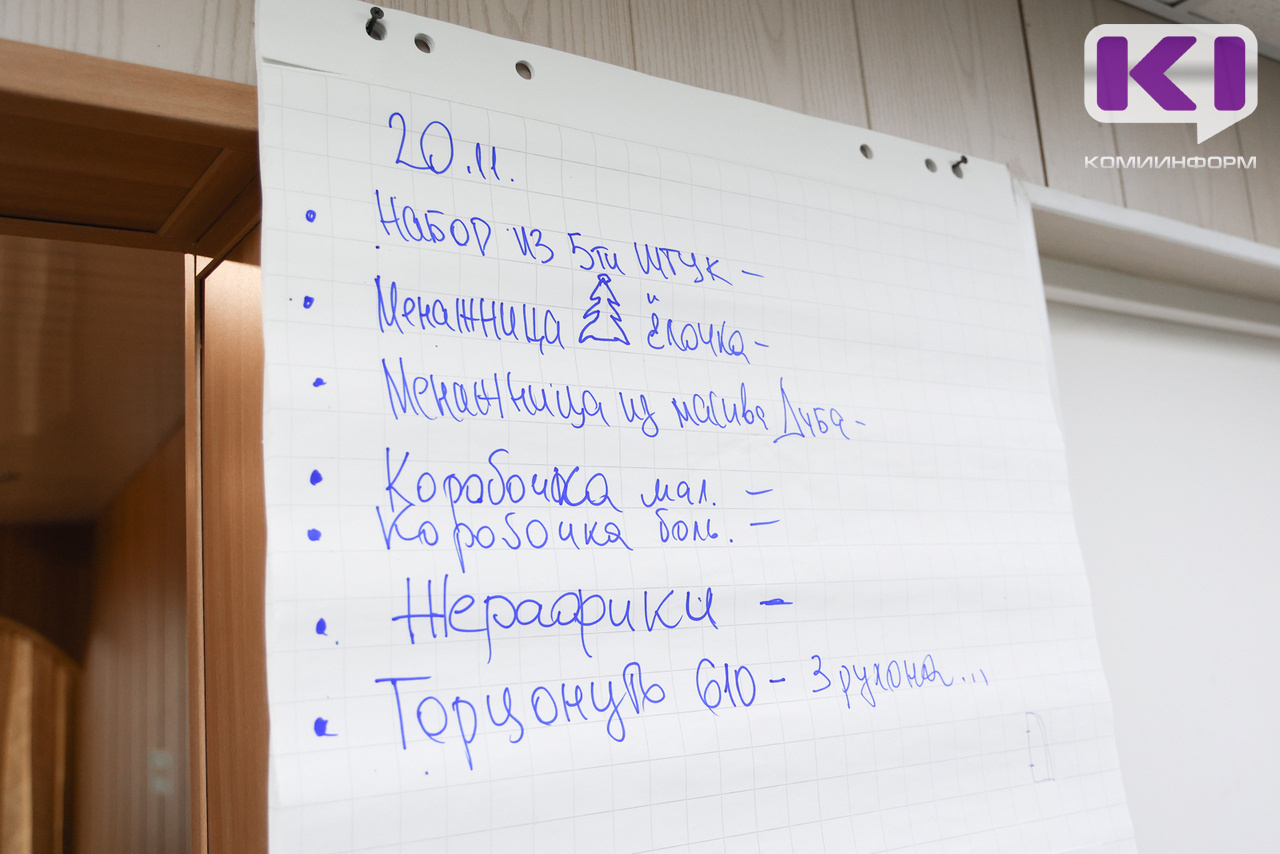 КОМИИНФОРМ
20.11.
• Набор из 5ти штук –
• Менажница ёлочка –
• Менажница из масива Дуба –
• Коробочка мал. –
• Коробочка боль. –
• Жерафики –
• Торцонуть 610 – 3 рухоная...